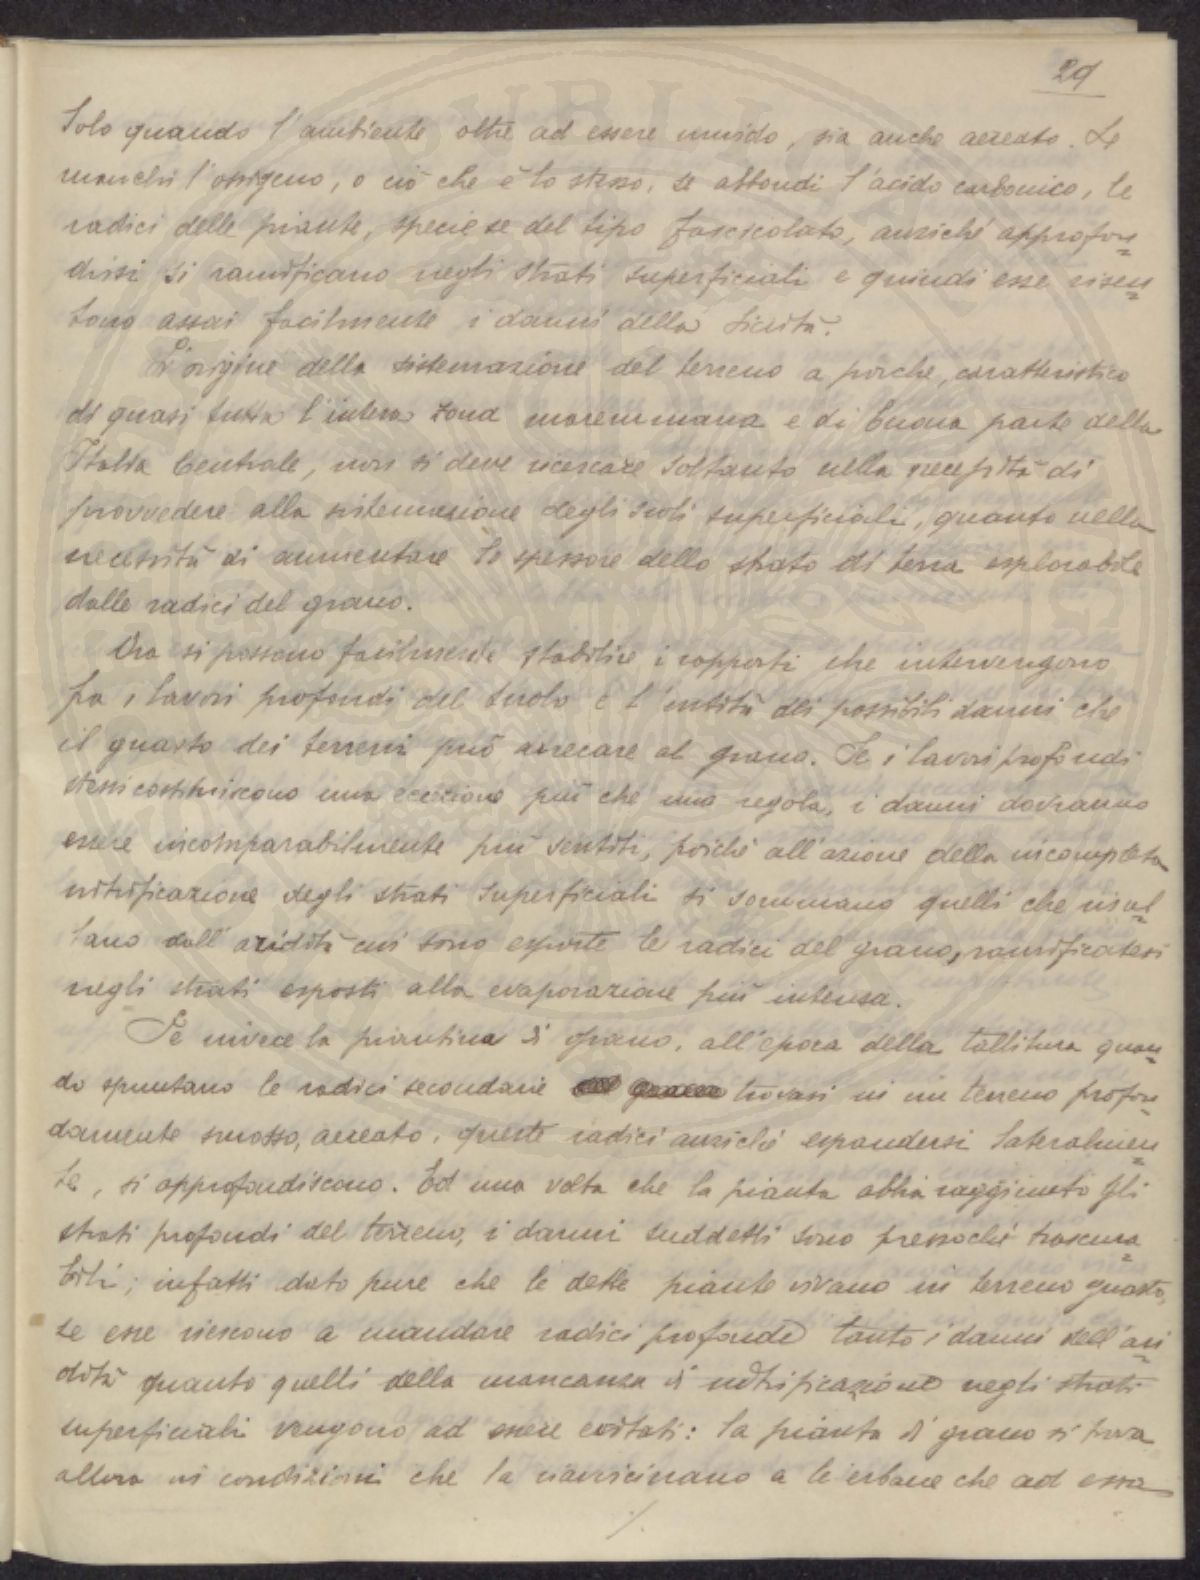 29
Solo quando l'ambiente oltre ad essere umido, sia anche aereato. Se
manchi l'ossigeno, o ciò che è lo stesso, se abbondi l'acido carbonico, le
radici delle piante, specie se del tipo fascicolato, anziché approfon=
dirsi si ramificano negli strati superficiali e quindi esse risen=
tono assai facilmente i danni della siccità.
L'origine della sistemazione del terreno a porche, caratteristica
di quasi tutta l'intera zona maremmana e di buona parte della
Italia Centrale, non si deve ricercare soltanto nella necessità di
provvedere alla sistemazione degli scoli superficiali, quanto nella
necessità di aumentare lo spessore dello strato di terra esplorabile
dalle radici del grano.
Ora si possono facilmente stabilire i rapporti che intervengono
fra i lavori profondi del suolo e l'entità dei possibili danni che
il guasto dei terreni può arrecare al grano. Se i lavori profondi
stessi costituiscono una eccezione più che una regola, i danni dovranno
essere incomparabilmente più sentiti, poiché all'azione della incompleta
nitrificazione degli strati superficiali si sommano quelli che risul=
tano dall'aridità cui sono esposte le radici del grano, ramificatesi
negli strati esposti alla evaporazione più intensa.
Se invece la piantina di grano, all'epoca della tallitura quan=
do spuntano le radici secondarie trovasi in un terreno profon=
damente smosso, aereato, queste radici anziché espandersi lateralmen=
te, si approfondiscono. Ed una volta che la pianta abbia raggiunto gli
strati profondi del terreno, i danni suddetti sono pressoché trascura=
bili; infatti dato pure che le dette piante vivano in terreno guasto,
se esse riescono a mandare radici profonde tanto i danni dell'ari=
dità quanto quelli della mancanza di nitrificazione negli strati
superficiali vengono ad essere evitati: la pianta di grano si trova
allora in condizioni che la riavvicinano a le erbacee che ad essa
/